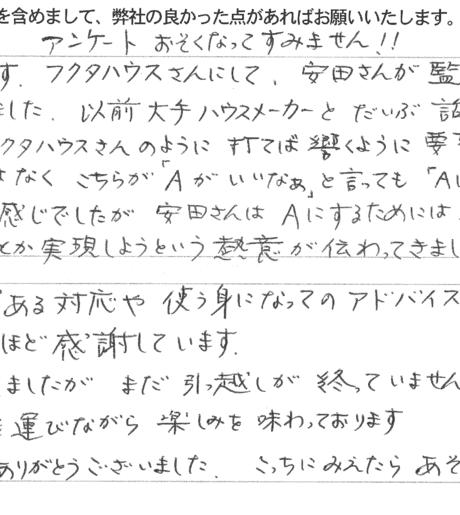 を含めまして、弊社の良かった点があればお願いいたします。
アンケート おそくなってすみません!!
す. フクタハウスさんにして、安田さんが監
ました. 以前 大手ハウスメーカーと だいぶ
クタハウスさんのように 打てば響くように 要
はなく こちらが「Aがいいなぁ」と言っても「A
感じでしたが 安田さんは Aにするためには
とか実現しようという熱意が伝わってきまし
ある対応や 使う身になってのアドバイス
ほど感謝しています.
ましたが まだ 引っ越しが 終っていません
運びながら 楽しみを 味わっております
ありがとうございました. こっちにみえたら あそ